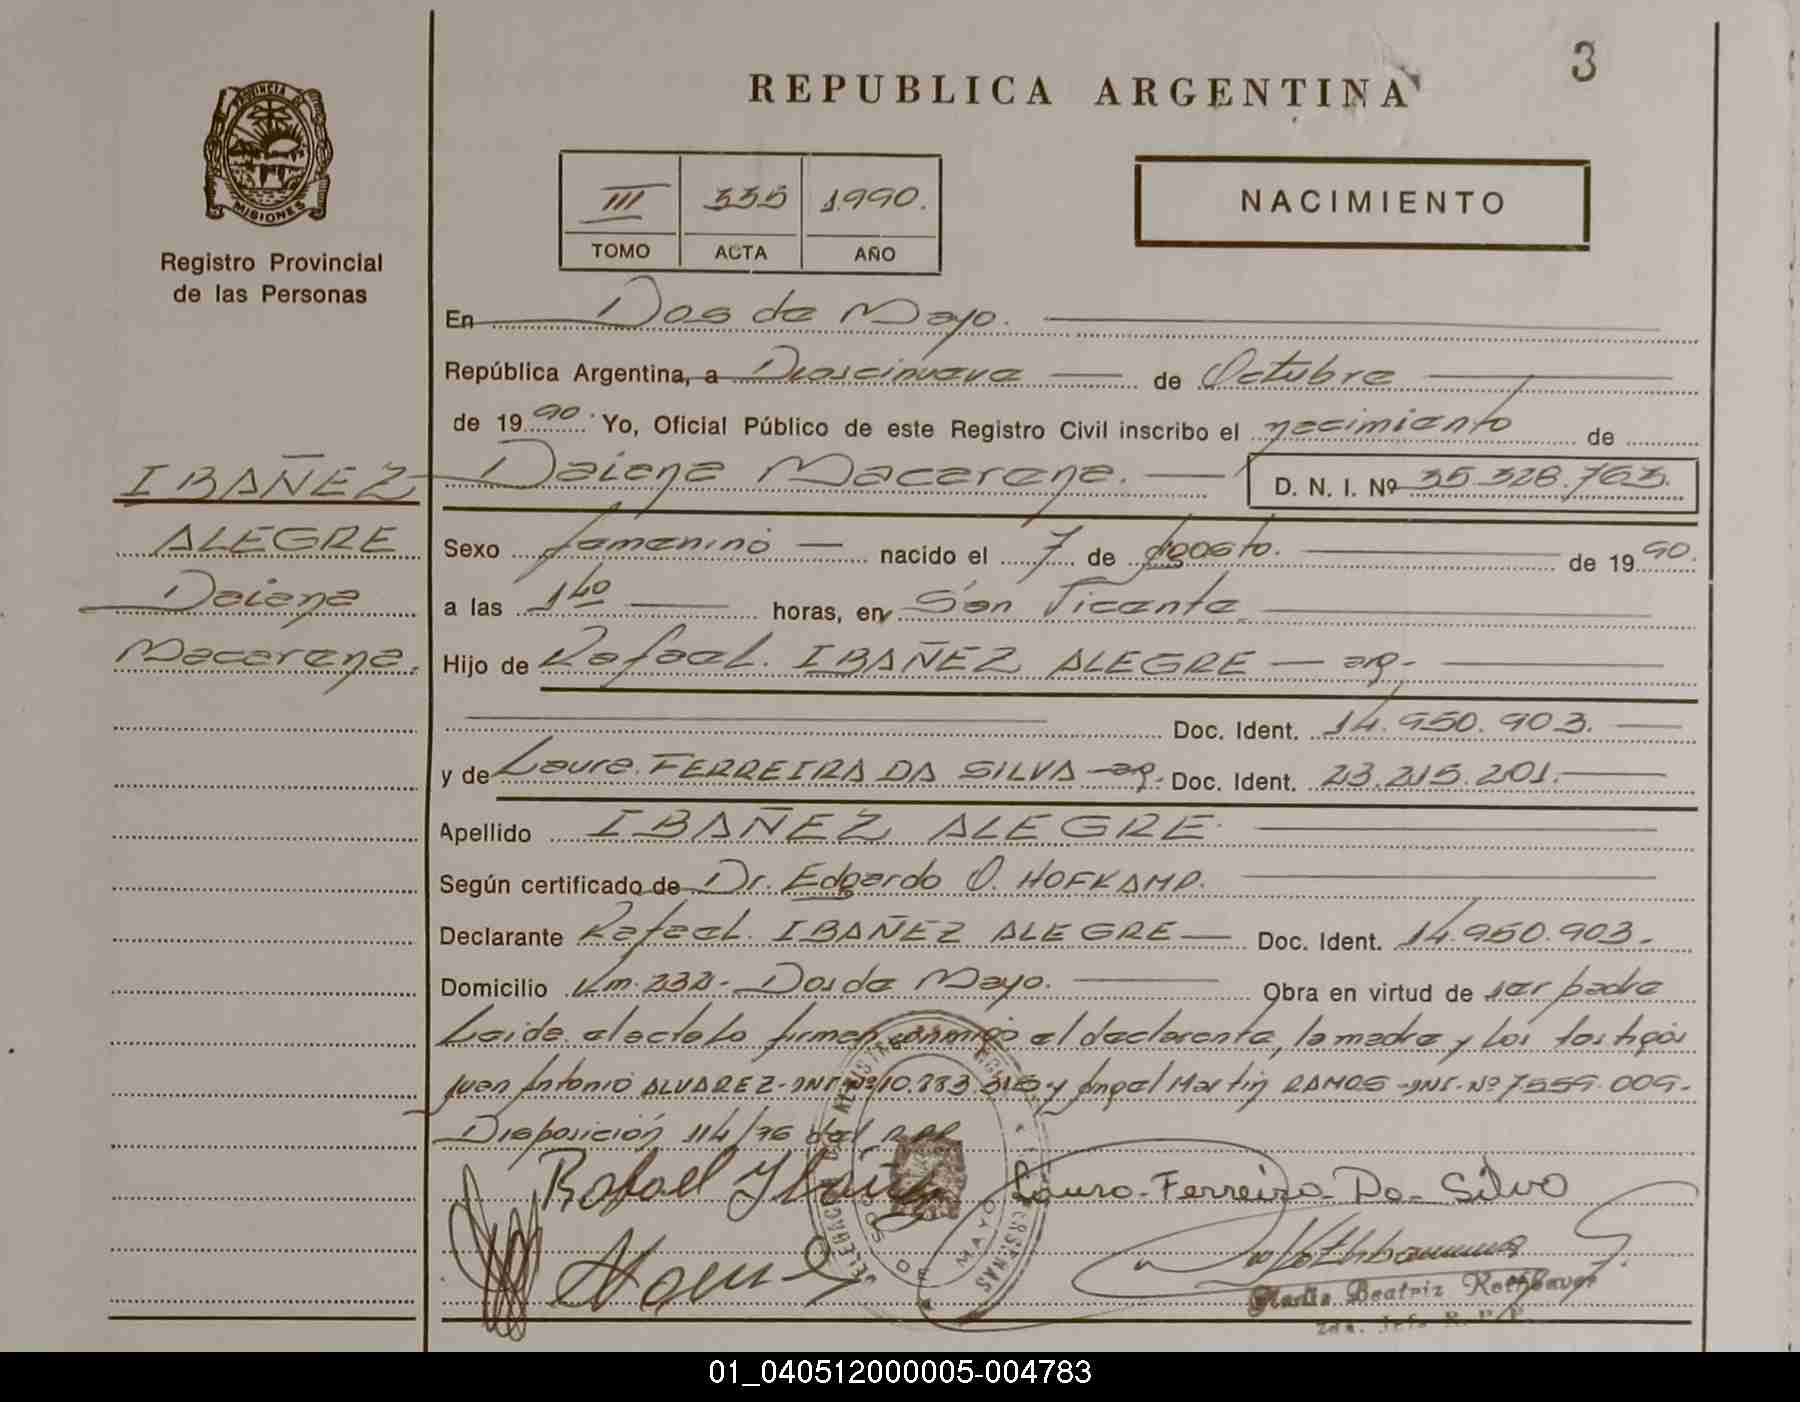 3
REPUBLICA ARGENTINA
PROVINCIA DE
MISIONES
Registro Provincial
de las Personas
III 335 1990.
TOMO ACTA AÑO
NACIMIENTO
En Dos de Mayo.
República Argentina, a Diescinueve de Octubre
de 1990. Yo, Oficial Público de este Registro Civil inscribo el nacimiento de
IBAÑEZ
ALEGRE
Daiana
Macarena.
Daiana Macarena. D. N. I. Nº 35.328.763.
Sexo femenino nacido el 7 de Agosto. de 1990.
a las 140 horas, en San Vicente
Hijo de Rafael. IBAÑEZ ALEGRE — arg.
Doc. Ident. 14.950.903.
y de Laura. FERREIRA DA SILVA — ag. Doc. Ident. 23.215.201.
Apellido IBAÑEZ ALEGRE.
Según certificado de Dr. Edgardo O. HOFKAMP.
Declarante Rafael. IBAÑEZ ALEGRE — Doc. Ident. 14.950.903.
Domicilio Km. 232. Dos de Mayo. Obra en virtud de ser padre
Leida el acta lo firman conmigo el declarante, la madre y los testigos
Juan Antonio ALVAREZ - INI. Nº 10.283. y Angel Martin RAMOS - INI. Nº 7.559.009.
Disposición 114/76 del RPP
Rafael Ybañez Laura Ferreira Da Silva
Beatriz Rothbauer
2da. Jefe R.P.P.
01_040512000005-004783